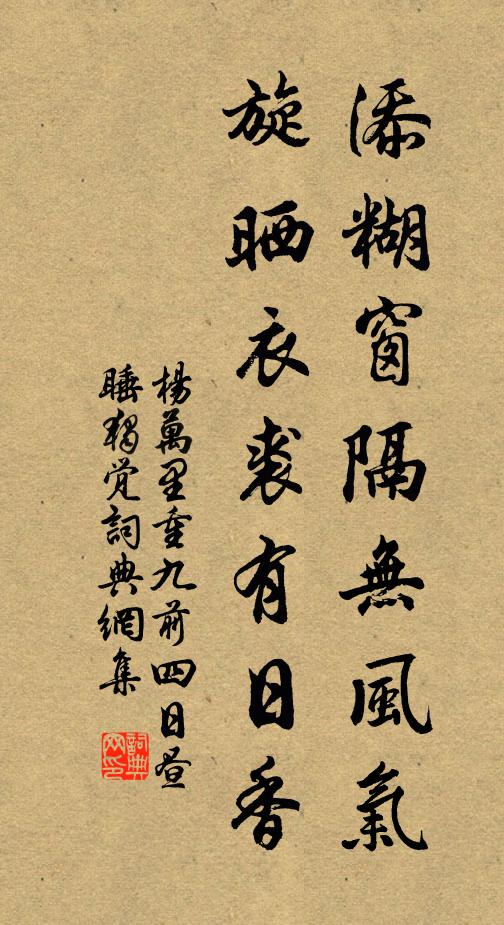 添糊窗隔無風氣
旋晒衣裘有日香
楊萬里重九前四日晝
睡獨覚詞典網集
詞典
网印